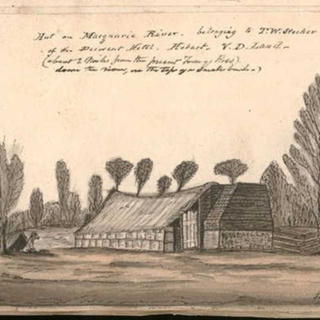 Hut on Macquarie River. belonging to T.W. Stocker
of the Derwent Hotel. Hobart. V. D. Land.
(about 2 Miles from the present Town of Ross)
down the river, on the top of a small bank.)